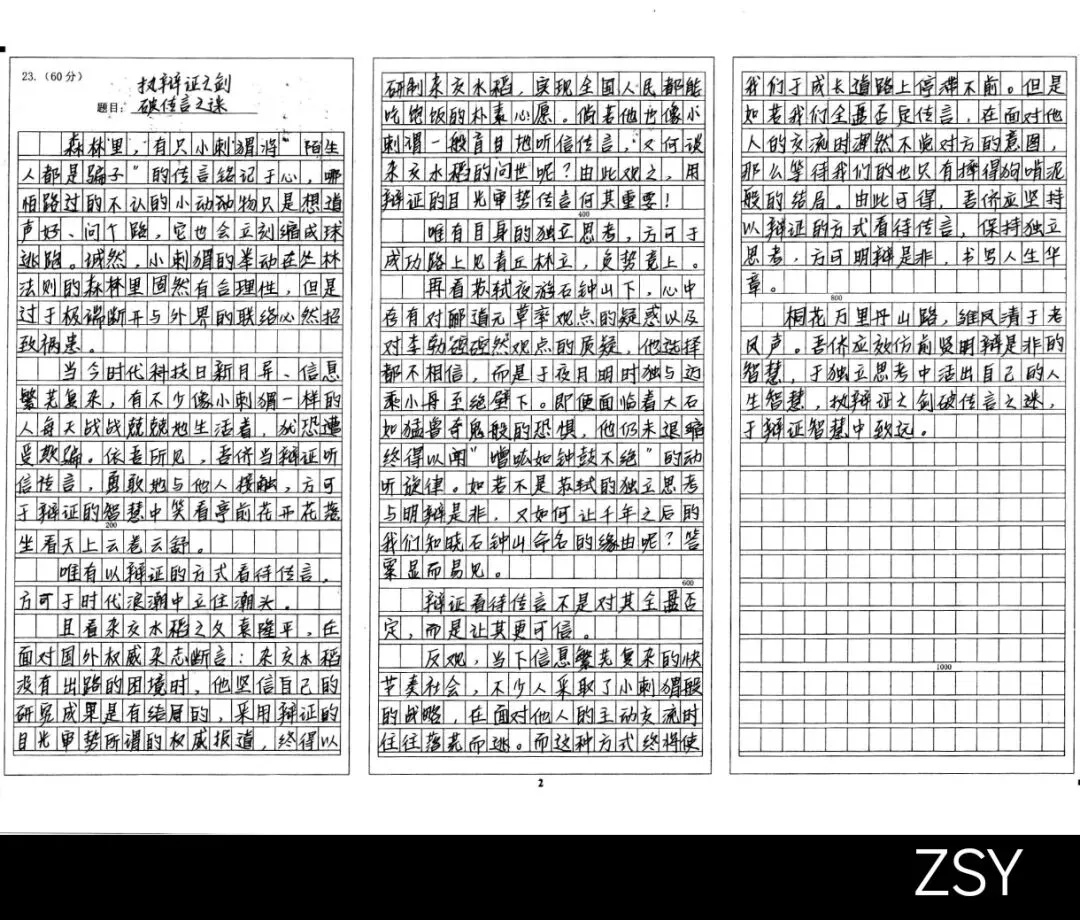 23.（60分）
执辩证之剑
题目：破传言之迷
森林里，有只小刺猬将“陌生
人都是骗子”的传言铭记于心，哪
怕路过的不认的小动物只是想道
声好、问个路，它也会立刻缩成球
逃跑。诚然，小刺猬的举动在丛林
法则的森林里固然有合理性，但是
过于极端断开与外界的联络必然招
致祸患。
当今时代科技日新月异、信息
繁芜复杂，有不少像小刺猬一样的
人每天战战兢兢地生活着，犹恐遭
受欺骗。依吾所见，吾侪当辩证听
信传言，勇敢地与他人接触，方可
于辩证的智慧中笑看亭前花开花落
200
坐看天上云卷云舒。
唯有以辩证的方式看待传言，
方可于时代浪潮中立住潮头。
且看杂交水稻之父袁隆平，在
面对国外权威杂志断言：杂交水稻
没有出路的困境时，他坚信自己的
研究成果是有结局的，采用辩证的
目光审势所谓的权威报道，终得以
研制杂交水稻，实现全国人民都能
吃饱饭的朴素心愿。倘若他也像小
刺猬一般盲目地听信传言，又何谈
杂交水稻的问世呢？由此观之，用
辩证的目光审势传言何其重要！
400
唯有自身的独立思考，方可于
成功路上见青丘林立，负势竞上。
再看苏轼夜游石钟山下，心中
存有对郦道元草率观点的疑惑以及
对李勃硿硿然观点的质疑，他选择
都不相信，而是于夜月明时独与迈
乘小舟至绝壁下。即便面临着大石
如猛兽奇鬼般的恐惧，他仍未退缩
终得以闻“噌吰如钟鼓不绝”的动
听旋律。如若不是苏轼的独立思考
与明辩是非，又如何让千年之后的
我们知晓石钟山命名的缘由呢？答
案显而易见。
600
辩证看待传言不是对其全盘否
定，而是让其更可信。
反观，当下信息繁芜复杂的快
节奏社会，不少人采取了小刺猬般
的战略，在面对他人的主动交流时
往往落荒而逃。而这种方式终将使
2
我们于成长道路上停滞不前。但是
如若我们全盘否定传言，在面对他
人的交流时浑然不觉对方的意图，
那么等待我们的也只有摔得狗啃泥
般的结局。由此可得，吾侪应坚持
以辩证的方式看待传言，保持独立
思考，方可明辩是非，书写人生华
章。
800
桐花万里丹山路，雏凤清于老
凤声。吾侪应效仿前贤明辩是非的
智慧，于独立思考中活出自己的人
生智慧，执辩证之剑破传言之迷，
于辩证智慧中致远。
1000
ZSY